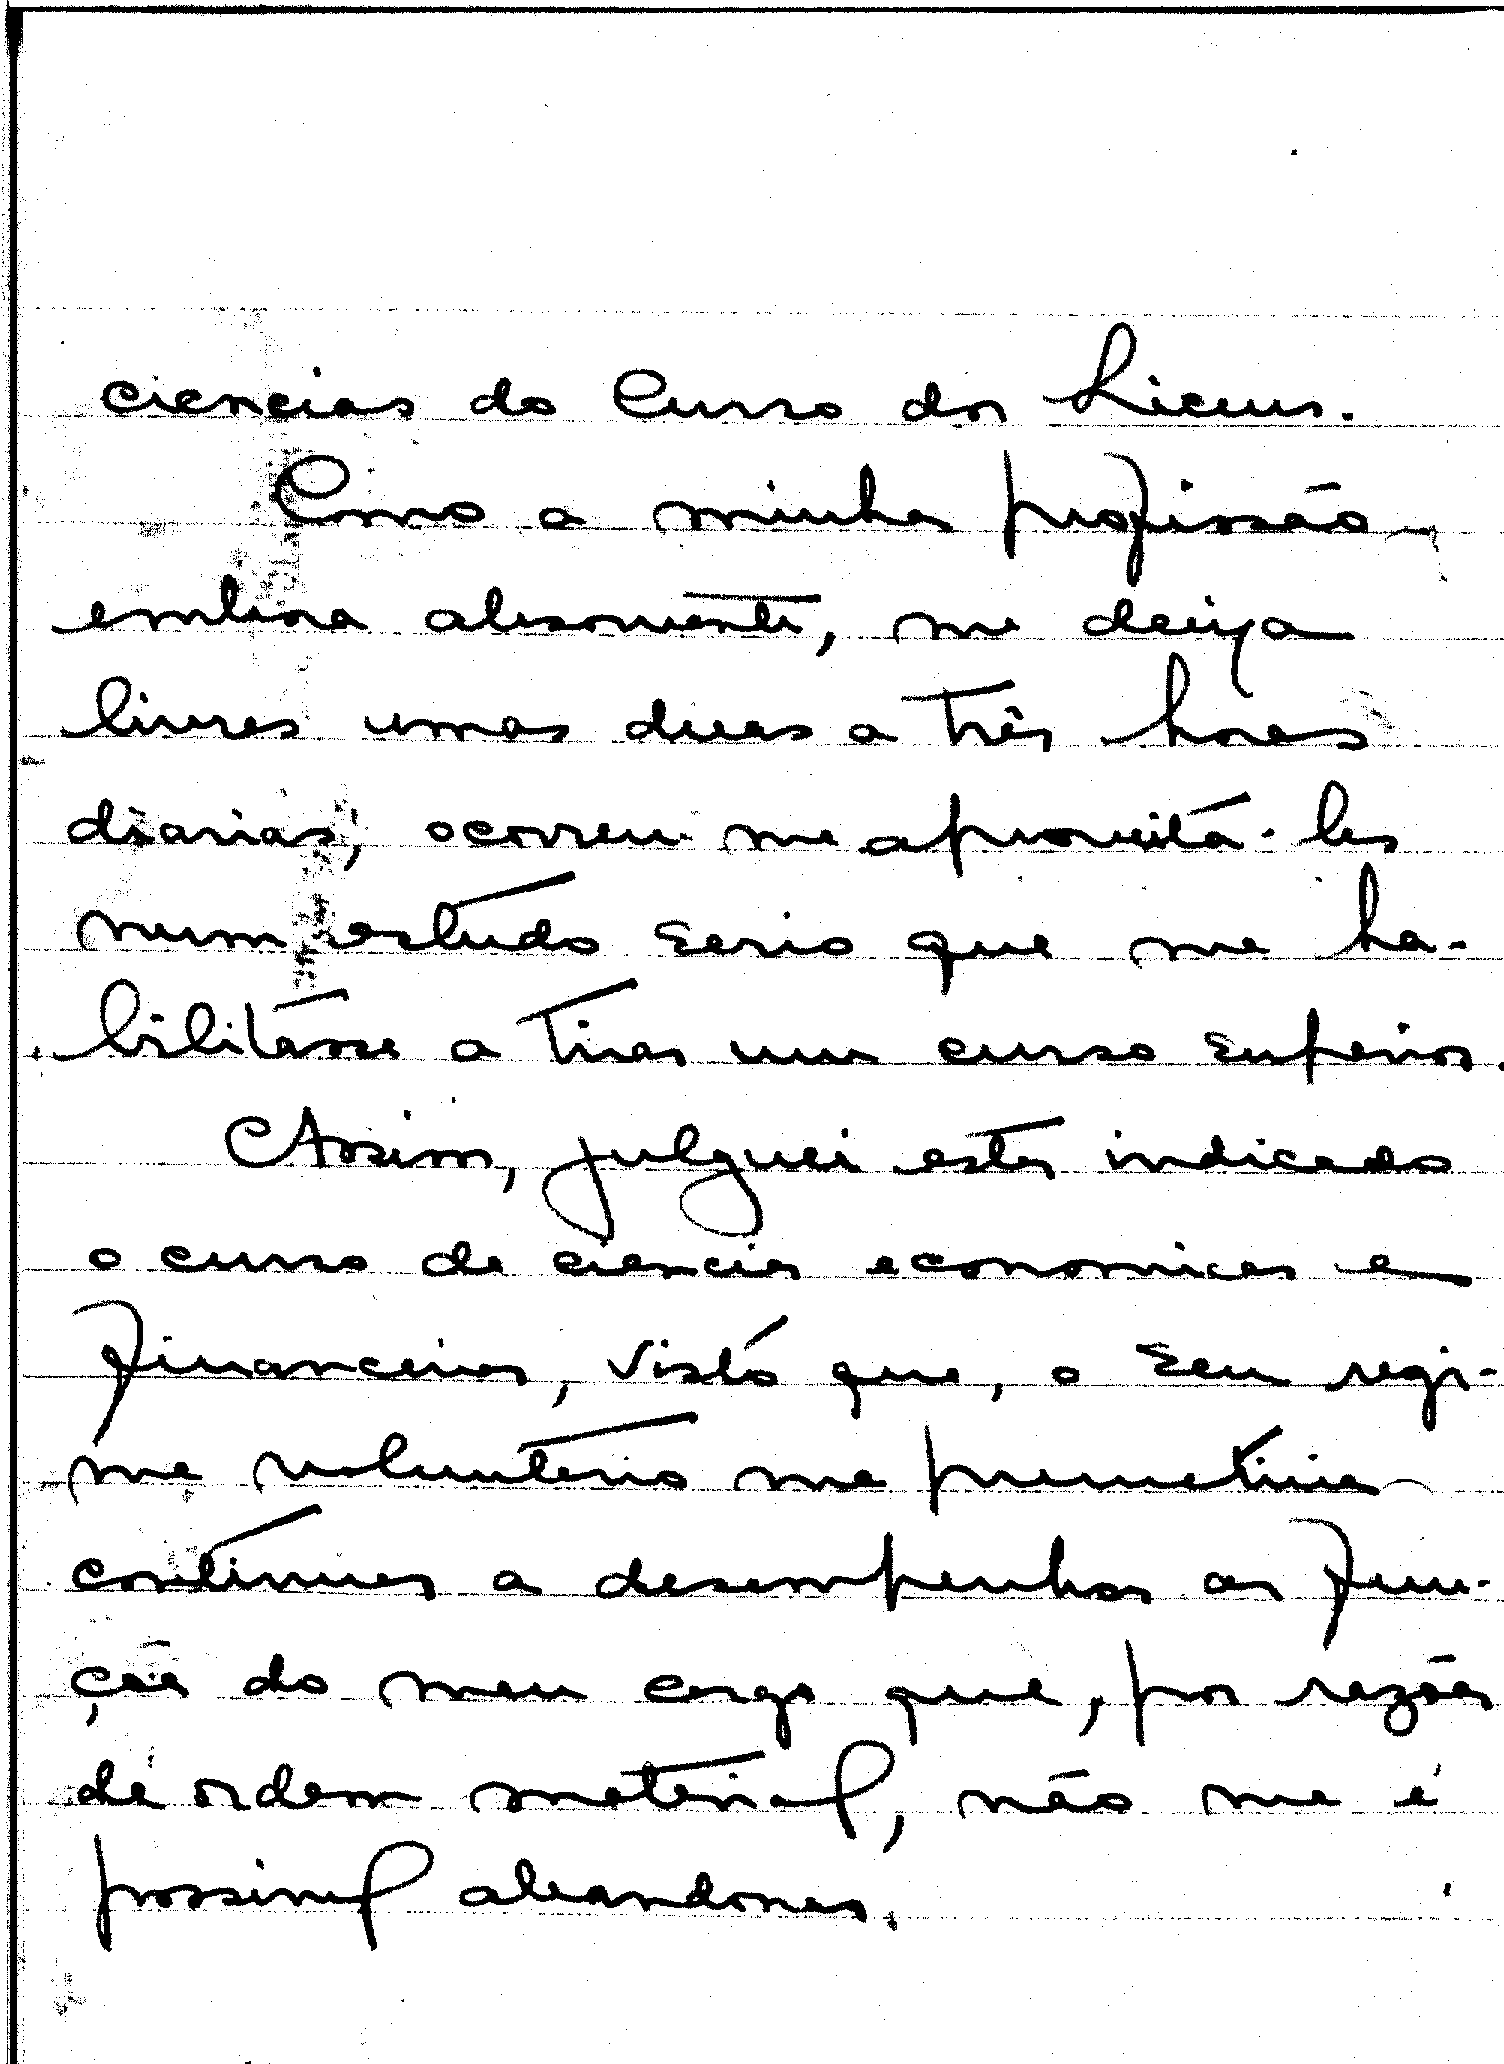 ciencias do Curso dos Liceus.
Como a minha profissão
embora absorvente, me deixa
livres umas duas a três horas
diarias, ocorreu me aproveitá-las
num estudo serio que me ha-
bilitásse a tirar um curso superior.
Assim, julguei estar indicado
o curso de ciencias economicas e
financeiras, visto que, o seu regi-
me voluntario me permitiria
continuar a desempenhar as fun-
ções do meu cargo que, por razões
de ordem material, não me é
possivel abandonar.